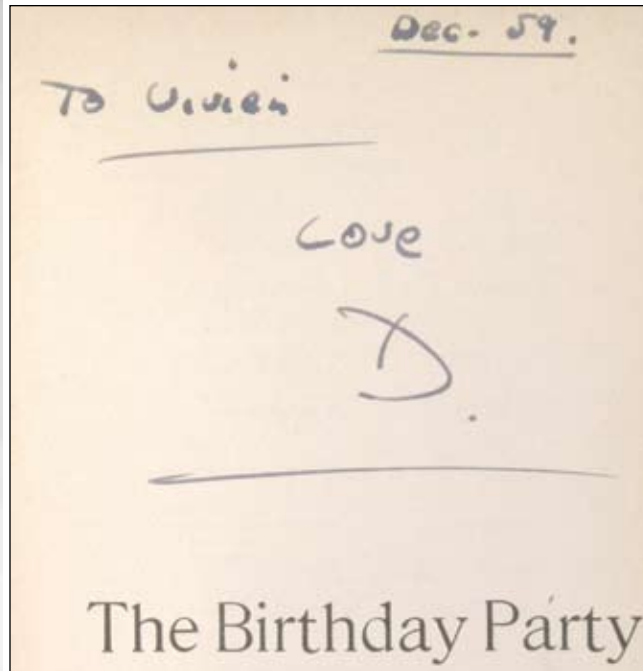 Dec. 59.
To Vivien
Love
D.
The Birthday Party